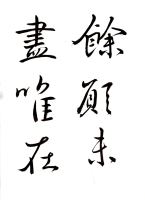 餘願未
盡唯在